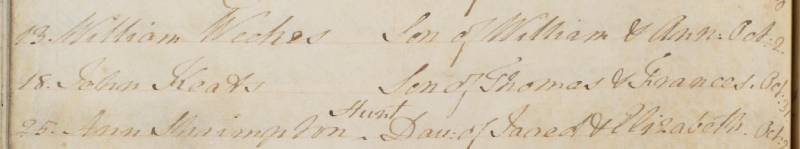 13. William Weekes Son of William & Ann. Oct: 2
18. John Keats Son of Thomas & Frances. Oct: 31
Hunt
25. Ann Shrimpton Dau: of Jared & Elizabeth. Oct: